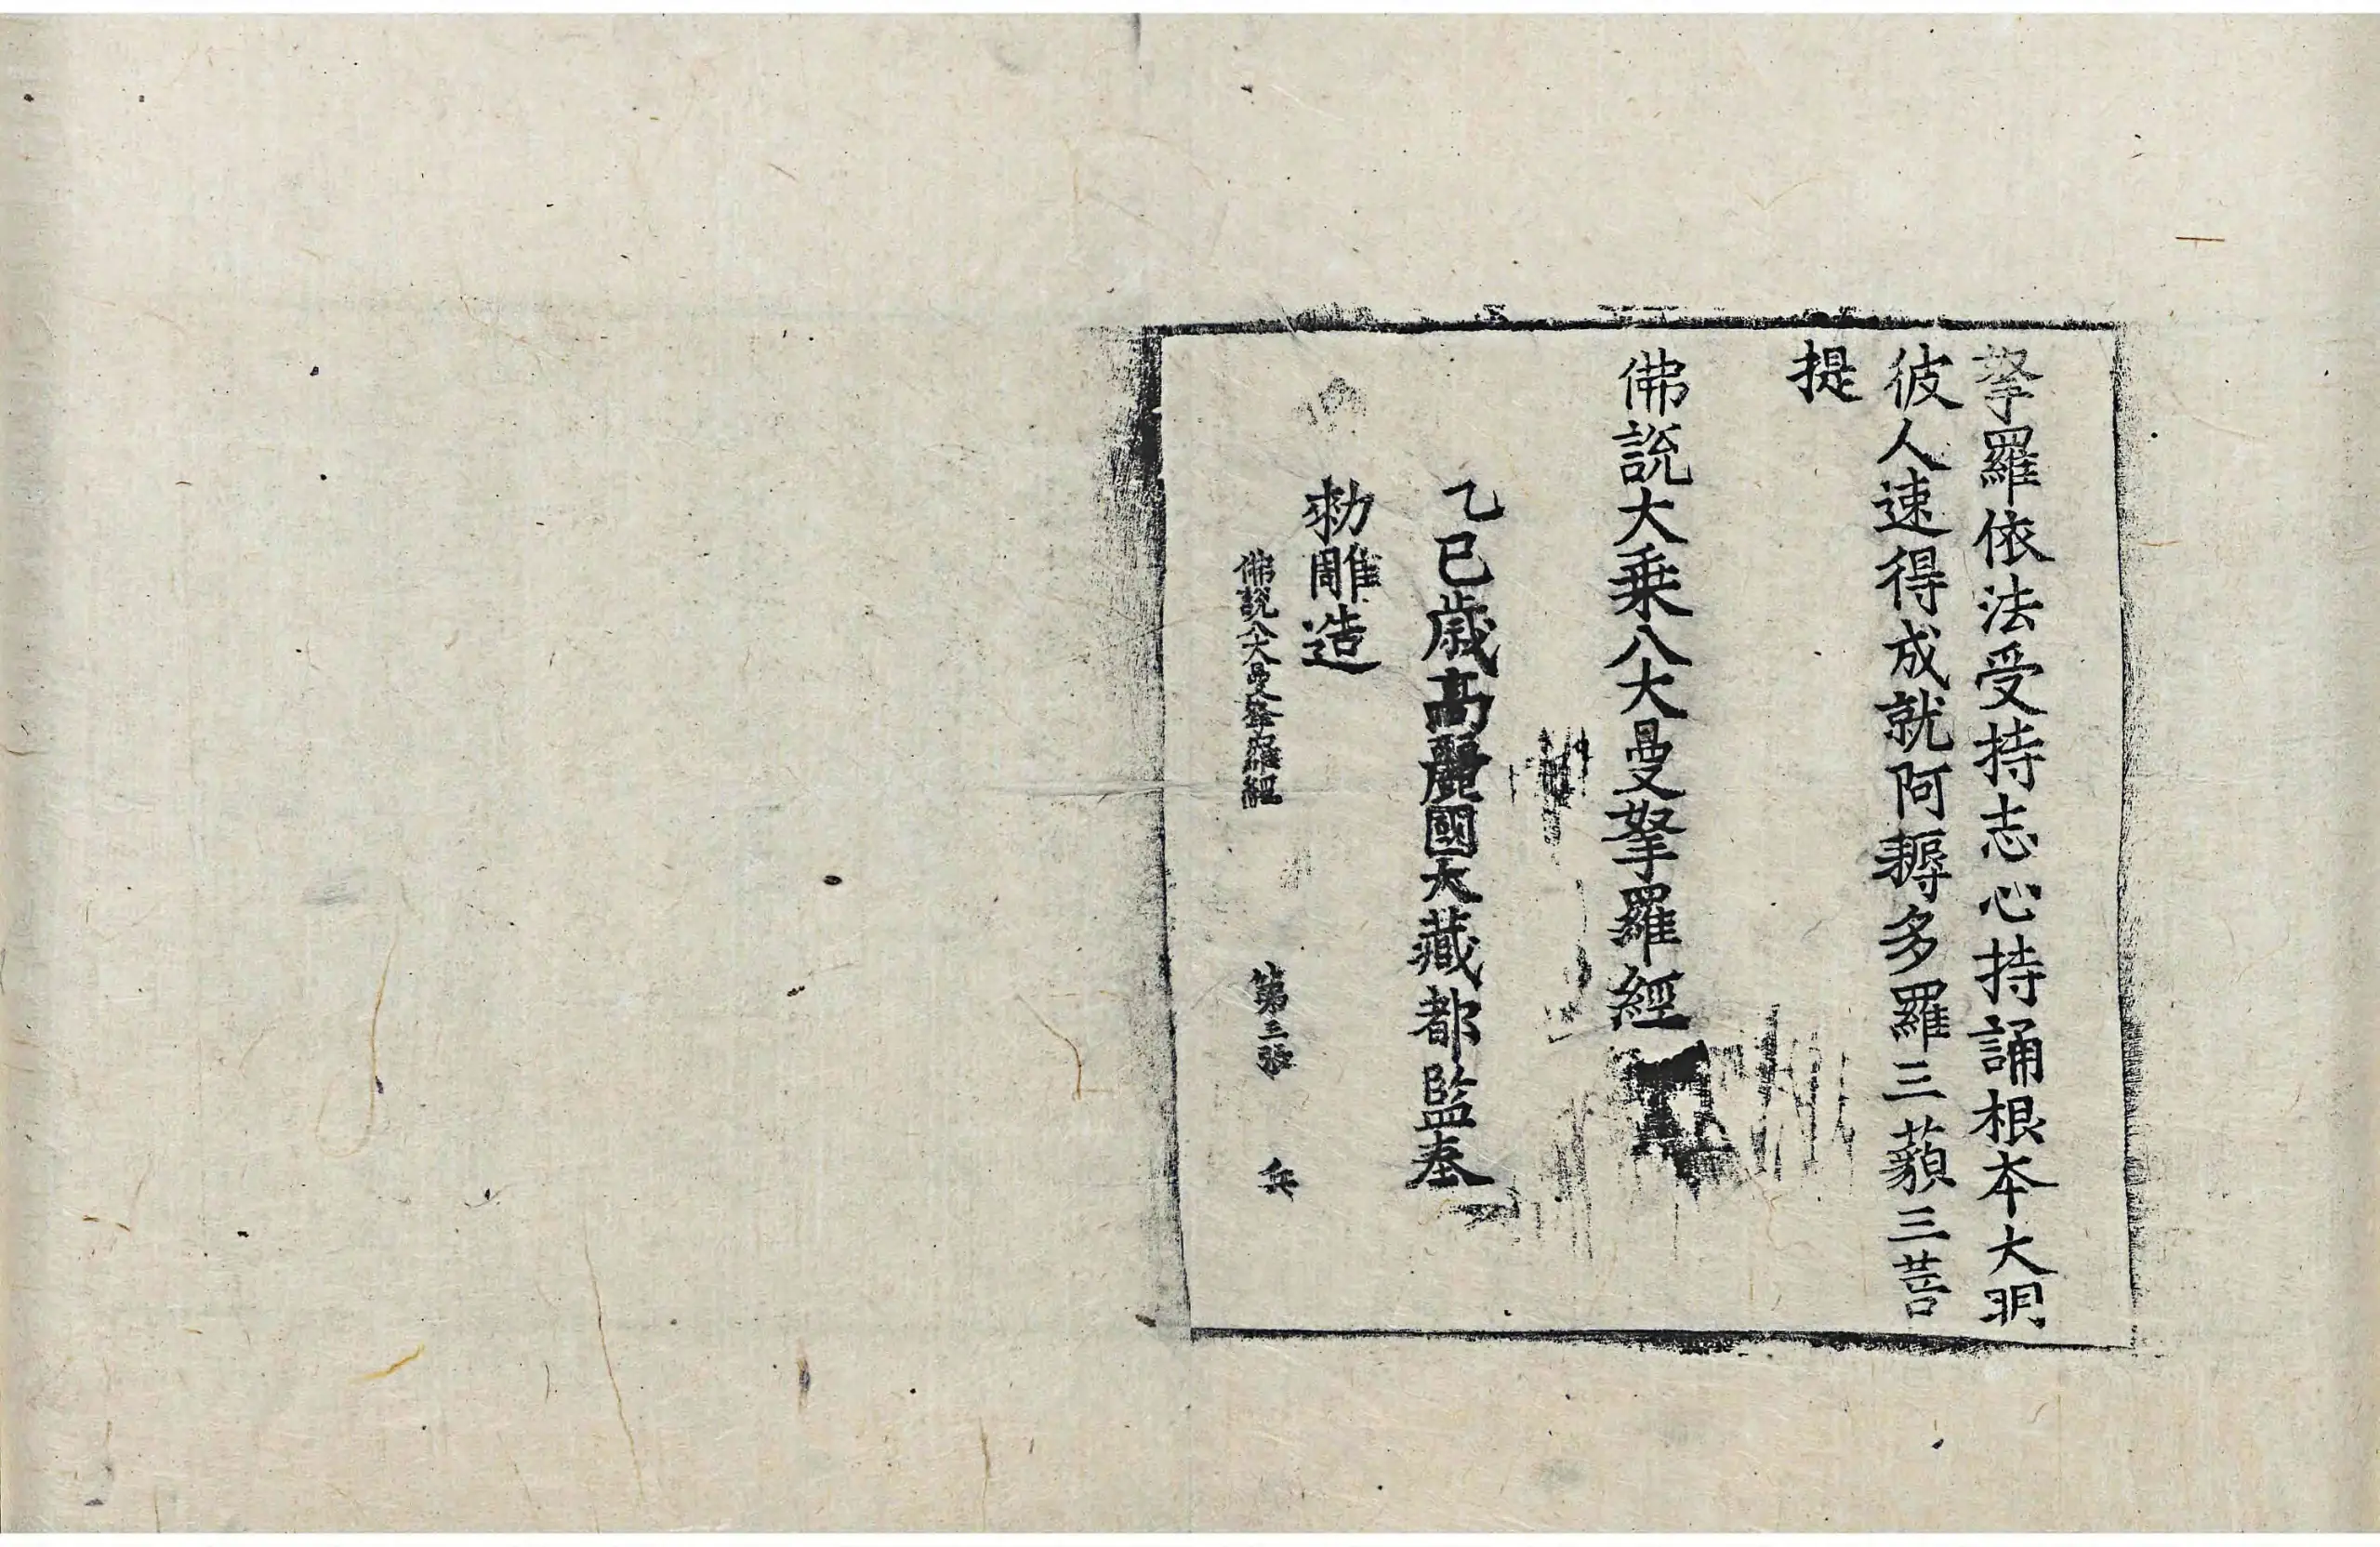 拏羅依法受持志心持誦根本大明
彼人速得成就阿耨多羅三藐三菩
提
佛說大乗八大曼拏羅經
乙巳歲高麗國大藏都監奉
勑雕造
佛說八大曼拏羅經 第三張 兵